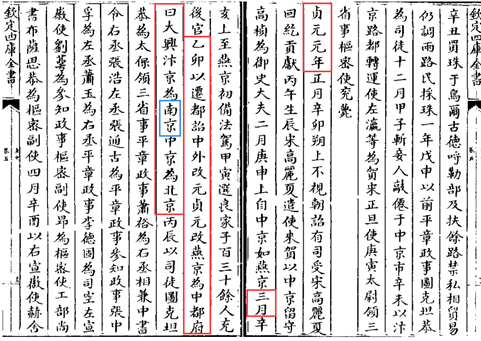 欽定四庫全書
辛丑買珠于烏爾古德哷勒部及扶餘路禁私相貿易
仍調兩路民採珠一年戊申以前平章政事圖克坦恭
為司徒十二月甲子斬妄人敲僊于中京市辛未以汴
京路都轉運使左瀛等為賀宋正旦使庚寅太尉領三
省事樞密使兖薨
貞元元年正月辛卯朔上不視朝詔有司受宋高麗夏
回紇貢獻丙午生辰宋高麗夏遣使來賀以中京留守
高楨為御史大夫二月庚申上自中京如燕京三月辛
亥上至燕京初備法駕甲寅選良家子百三十餘人充
後宮乙卯以遷都詔中外改元貞元改燕京為中都府
曰大興汴京為南京中京為北京丙辰以司徒圖克坦
恭為太保領三省事平章政事蕭裕為右丞相兼中書
令右丞張浩左丞張通古為平章政事參知政事張中
孚為左丞蕭玉為右丞平章政事李德固為司空左宣
徽使劉萼為參知政事樞密副使昂為樞密使工部尚
書布薩思恭為樞密副使四月辛酉以右宣徽使赫舍
欽定四庫全書
卷五